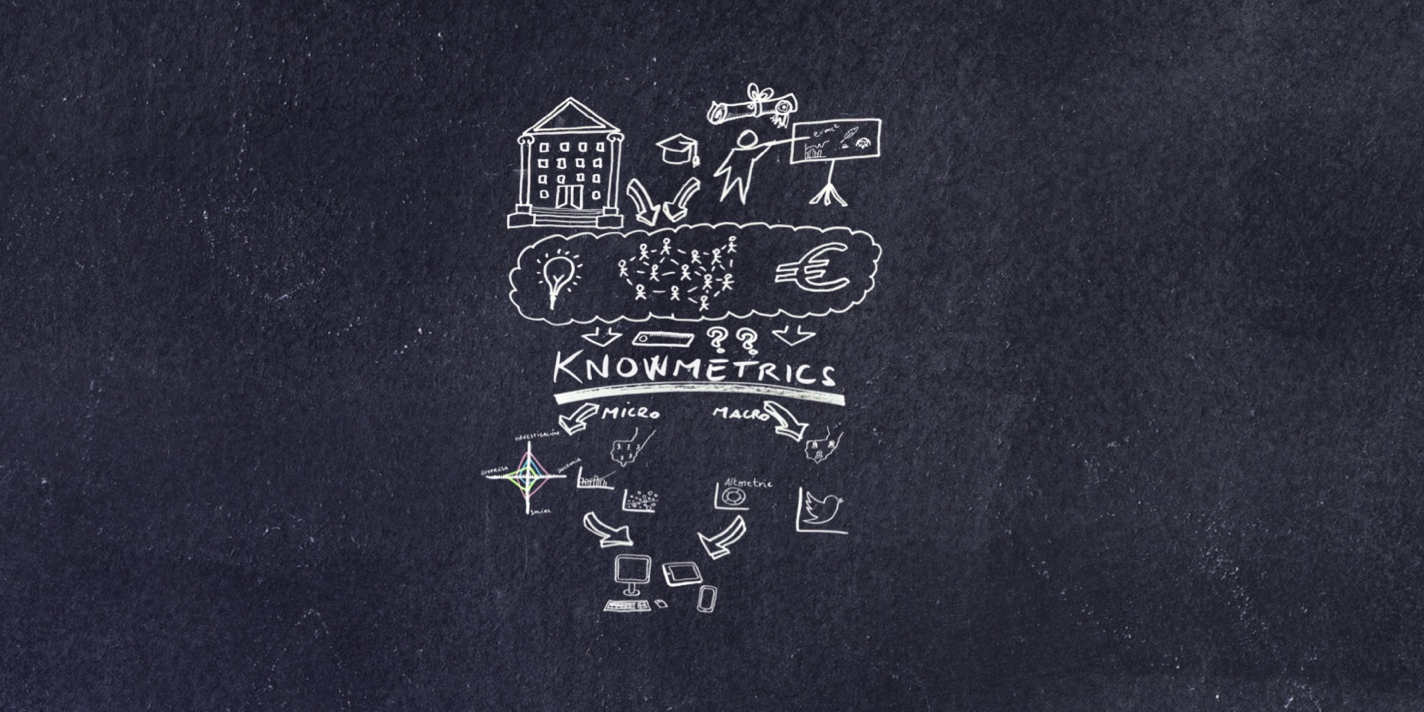 e=mc²
??
KNOWMETRICS
MICRO
MACRO
INVESTIGACIÓN
EMPRESA
DOCENCIA
SOCIAL
Altmetric